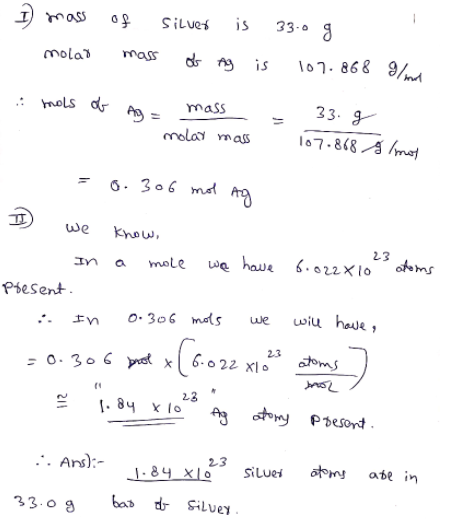 I) mass of silver is 33.0 g
molar mass of Ag is 107.868 g/mol
∴ mols of Ag = mass / molar mass = 33. g / 107.868 g/mol
= 0.306 mol Ag
II) we know,
In a mole we have 6.022 X 10^23 atoms
present.
∴ In 0.306 mols we will have,
= 0.306 mol x (6.022 x10^23 atoms/mol)
≅ "1.84 x 10^23" Ag atoms present.
∴ Ans):- 1.84 x10^23 silver atoms are in
33.0 g bar of silver.